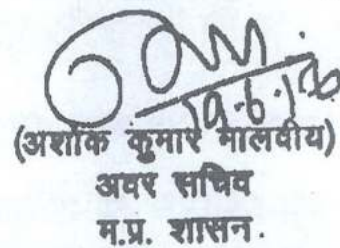 (अशोक कुमार मालवीय)
अवर सचिव
म.प्र. शासन.